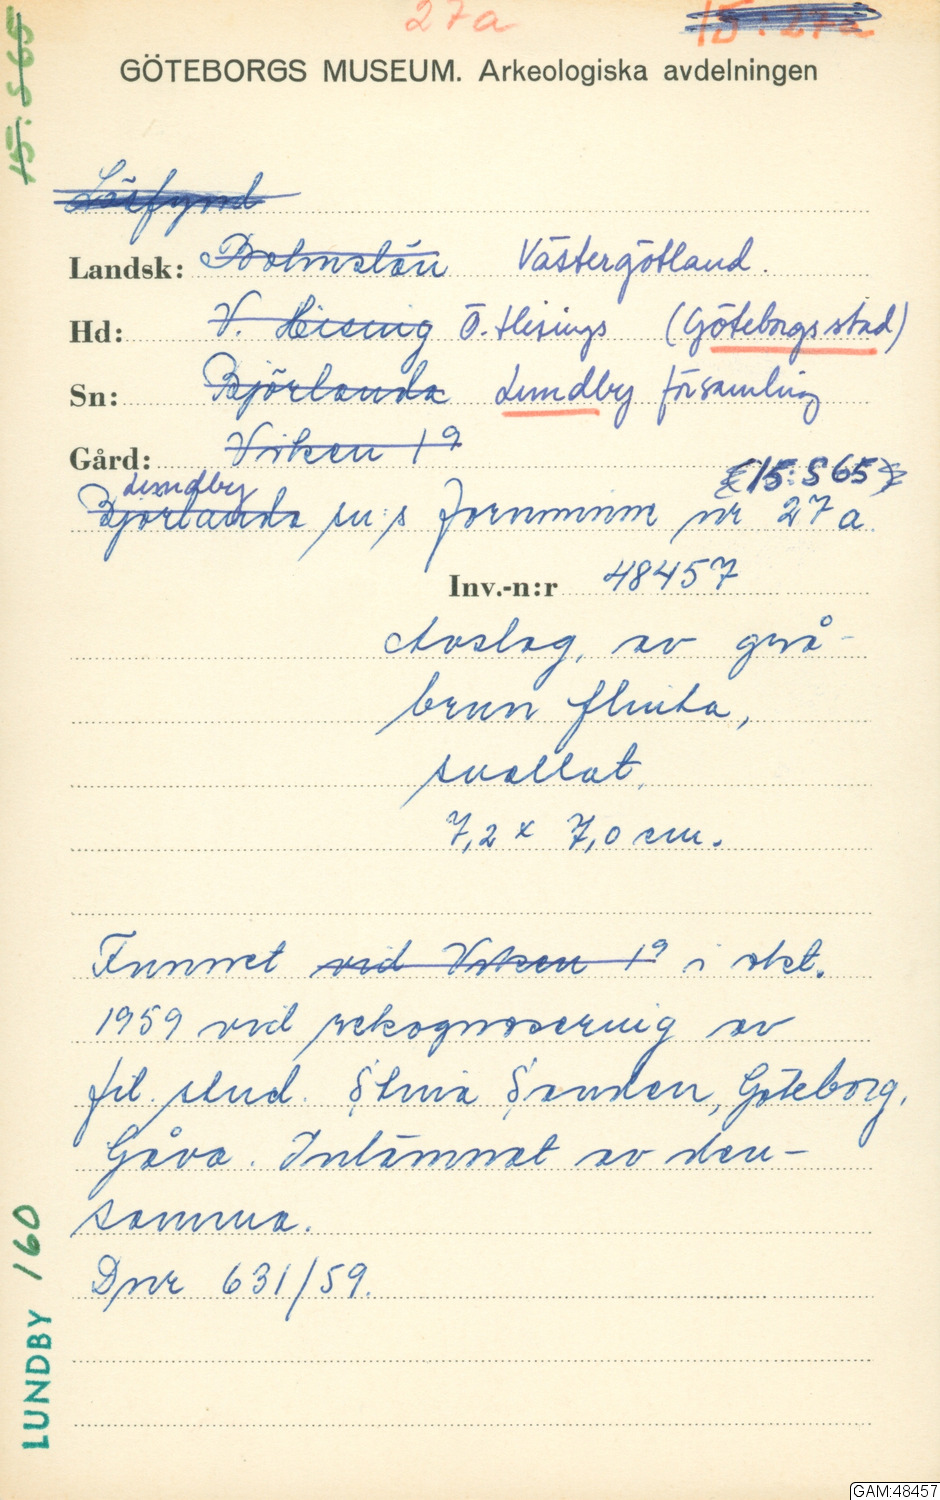 27a 15:27a
15:S65
GÖTEBORGS MUSEUM. Arkeologiska avdelningen
Lösfynd
Landsk: Bohuslän Västergötland.
Hd: V. Hising Ö. Hisings (Göteborgs stad)
Sn: Björlanda Lundby församling
Gård: Visken 1⁹
Lundby (15:S65)
Björlanda sn:s fornminne nr 27a.
Inv.-n:r 48457
Avslag, av grå-
brun flinta,
svallat.
7,2 x 7,0 cm.
Funnet vid Visken 1⁹ i okt.
1959 vid rekognosering av
fil. stud. Stina Sanden, Göteborg.
Gåva. Inlämnat av den-
samma.
Dnr 631/59.
LUNDBY 160
GAM:48457